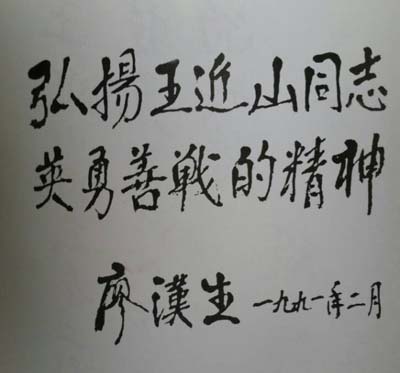 弘揚王近山同志
英勇善戰的精神
廖漢生 一九九一年二月